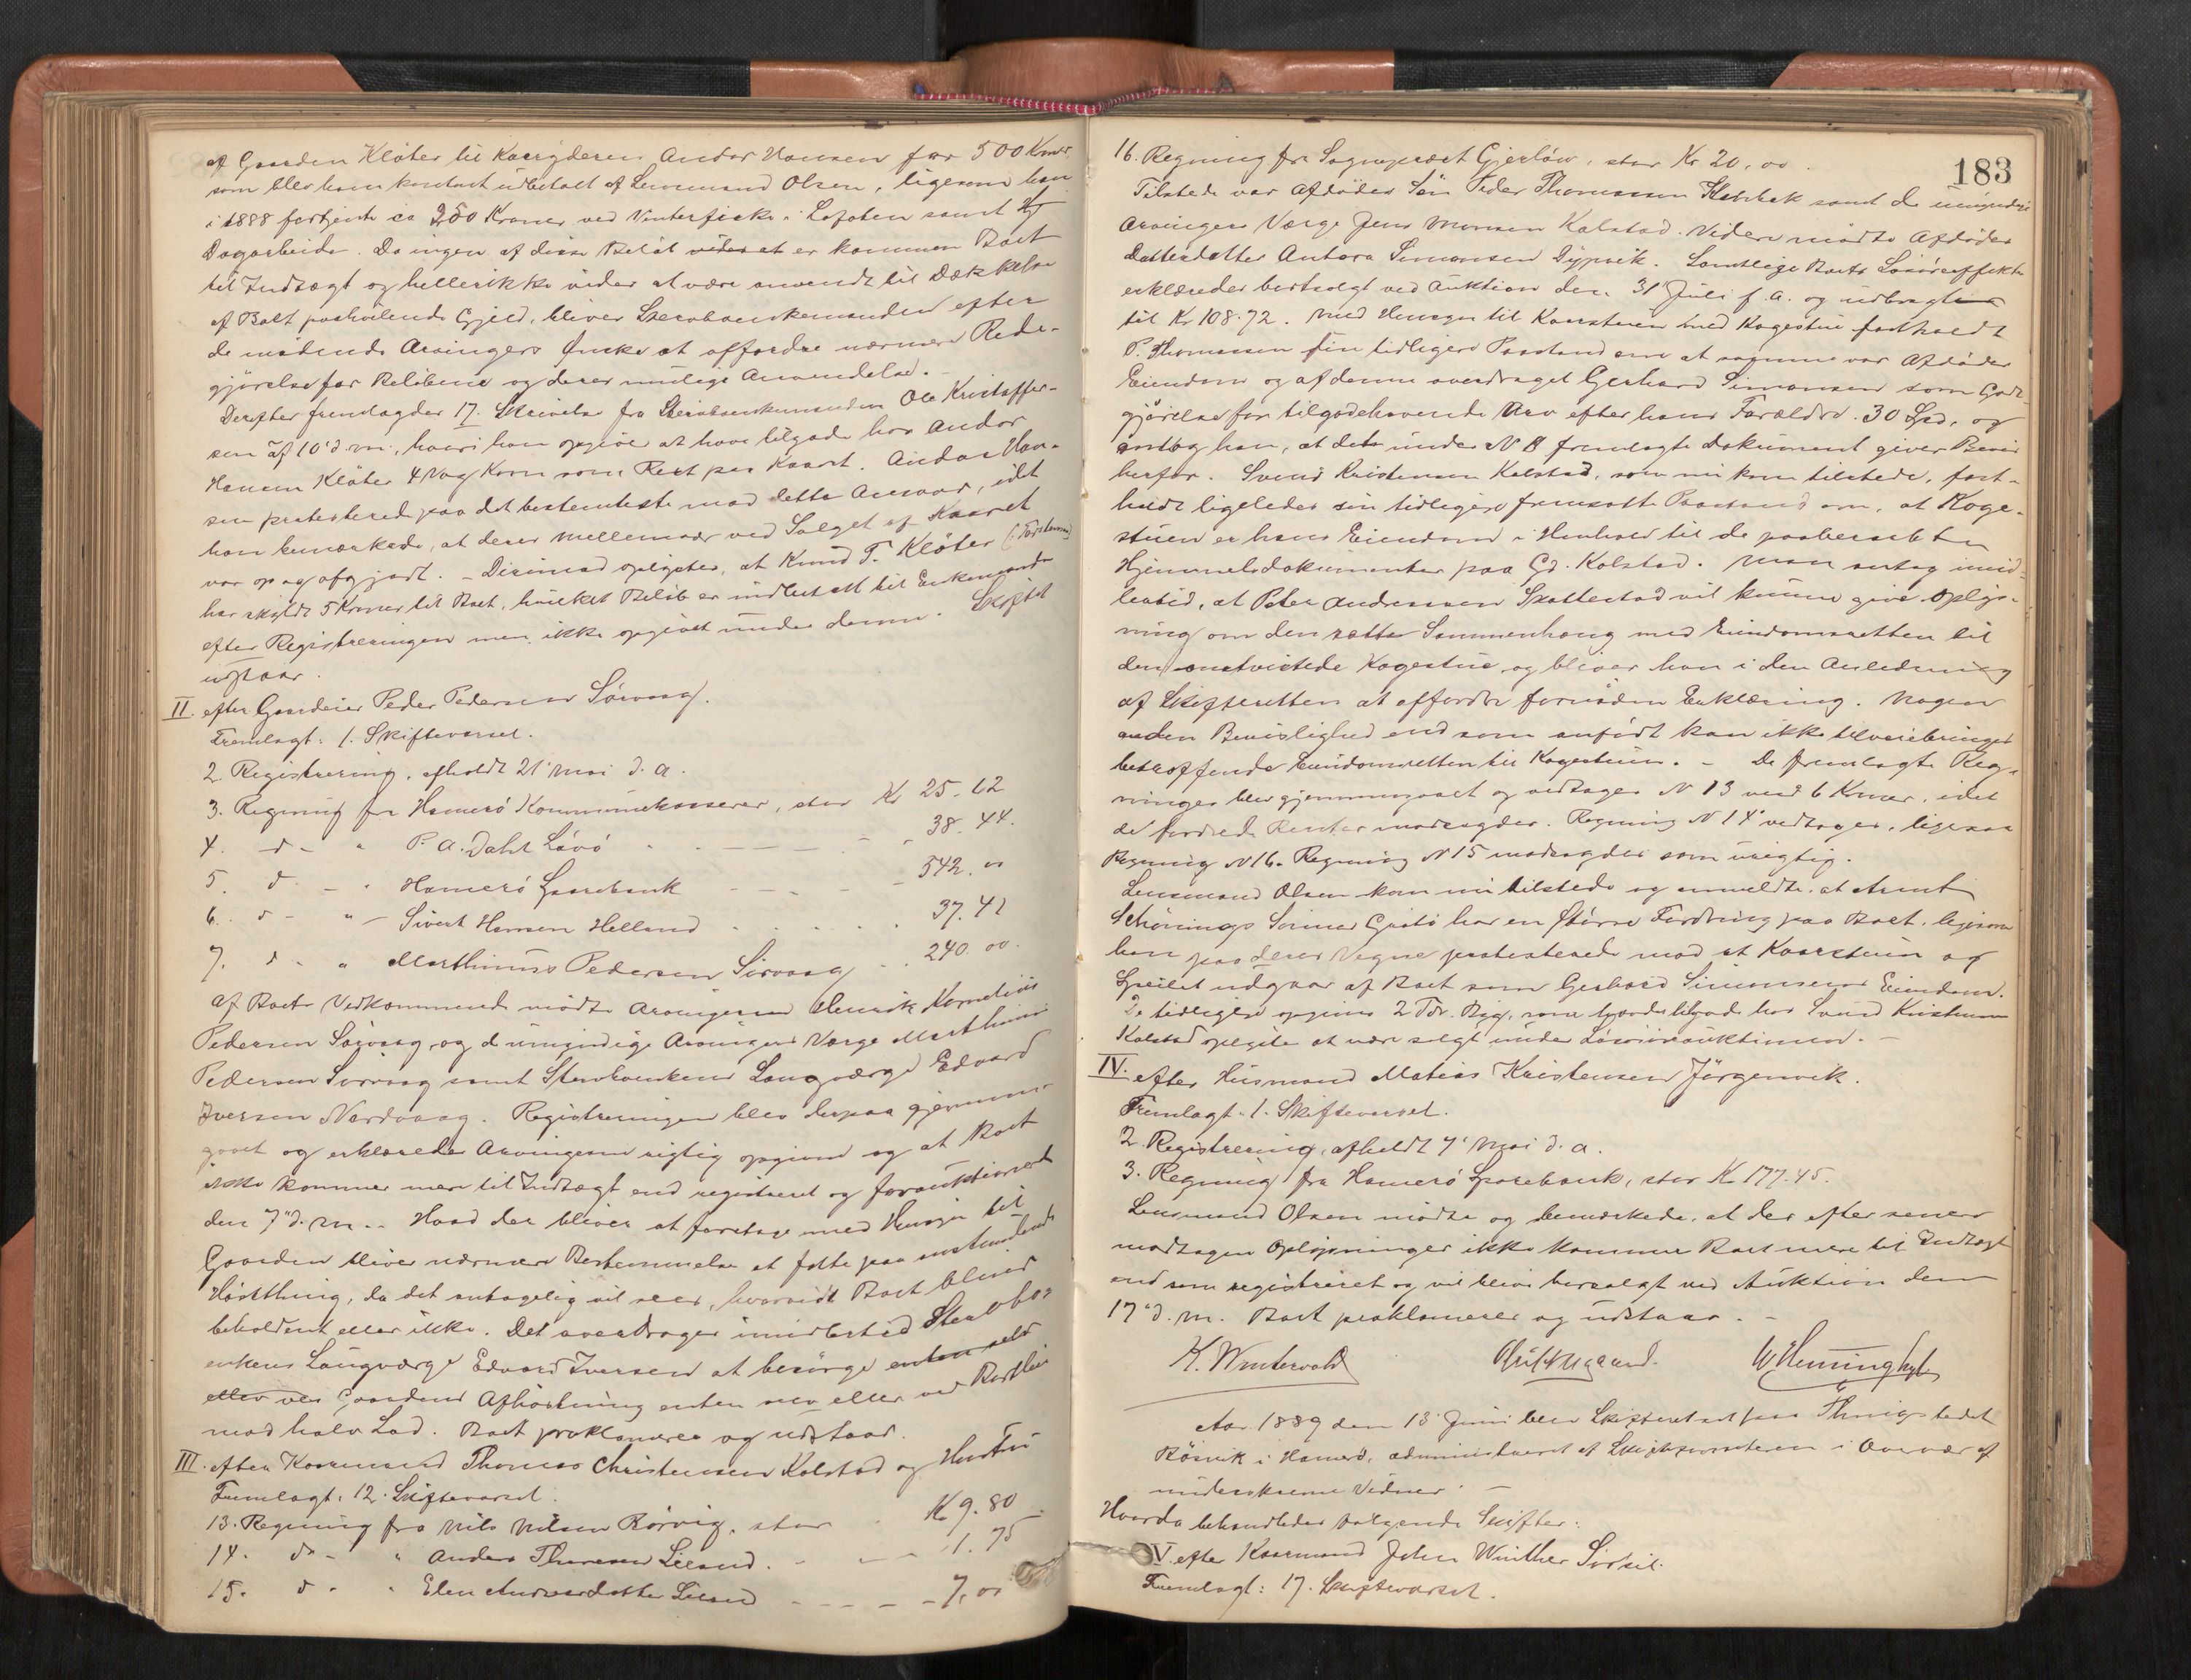 af Gaarden Kløter til Kaaryderen Andor Hansen for 500 Kroner,
som blev ham kontant udbetalt af Lensmand Olsen, ligesom han
i 1888 fortjente ca 250 Kroner ved Vinterfiske i Lofoten samt
Dagarbeide. Da ingen af disse Beløb vides at er kommen Boet
til Indtægt og hellerikke vides at være anvendt til Dækkelse
af Boet paahvilende Gjeld, bliver Stervboenkemanden efter
de mødende Arvingers Ønske at affordre nærmere Rede-
gjørelse for Beløbene og deres mulige Anvendelse. -
Derefter fremlagdes 17. Skrivelse fra Stervboenkemanden Ole Kristoffer-
sen af 10' d. m., hvori han opgiver at have tilgode hos Andor
Hansen Kløter 4 Vog Korn som Rest paa Kaaret. Andor Han-
sen protesterede paa det bestemteste mod dette Ansvar, idet
han bemærkede, at deres Mellemvær ved Salget af Kaaret
var op og afgjort. - Derimod oplystes, at Knud T. Kløter
har skyldt 5 Kroner til Boet, hvilket Beløb er indbetalt til Enkemanden
efter Registreringen men ikke opgivet under denne. Skiftet
udstaar.
II. efter Gaardeier Peder Pedersen Sørvaag.
Fremlagt: 1. Skiftevarsel.
2. Registrering, afholdt 21' Mai d. a.
3. Regning fra Hamerø Kommunekasserer, stor Kr 25.62
4. do - " P. A. Dahl Løvø - - - 38.44.
5. do - " Hamerø Sparebank - - - 542.00
6. do - " Sivert Hansen Helland . . . . 37.41
7. do - " Marthinus Pedersen Sørvaag - . 240.00.
Af Boets Vedkommende mødte Arvingerne Henrik Kornelius
Pedersen Sørvaag, og d umyndige Arvingers Værge Marthinus
Pedersen Sørvaag samt Stervboenkens Laugværge Edvard
Iversen Nordvaag. Registreringen blev derpaa gjennem-
gaaet og erklærede Arvingerne rigtig opgivne og at Boet
ikke kommer mere til Indtægt end registreret og forauktioneret
den 7' d. m. - Hvad der bliver at foretage med Hensyn til
Gaarden bliver nærmere Bestemmelse at fatte paa anstundende
Høstthing, da det antagelig vil sees, hvorvidt Boet bliver
beholdent eller ikke. Det overdrages imidlertid Stervbo-
enkens Laugværge Edvard Iversen at besørge enten selv
eller ved Gaardens Afhøstning enten selv eller ved Bortleie
mod halv Lod. Boet proklameres og udstaar.
III. efter Kaarmand Thomas Christensen Kolstad og Hustru
Fremlagt: 12. Skiftevarsel.
13. Regning fra Nils Nilsen Rørvig, stor . Kr 9.80
14. do - " Anders Thoresen Leesund. - - 1.75
15. d - " Elen Andersdatter Leesund - - - - 7,00
183
16. Regning fra Sogneprest Gjerløw, stor Kr 20,00.
Tilstede var Afdødes Søn Peder Thomassen samt de umyndige
Arvingers Værge Jens Monsen Kalstad. Videre mødte Afdødes
Datterdatter Antora Simonsen Dypvik. Samtlige Boets Løsøreeffekter
erklæredes bortsolgt ved Auktion den 31 Juli f. A. og udbragt
til Kr 108.72. Med Hensyn til Kaarstuen med Kogestue fastholdt
P. Thomassen sin tidligere Paastand om at samme var Afdødes
Eiendom og af denne overdraget Gerhard Simonsen som Godt-
gjørelse for tilgodehavende Arv efter hans Forældre 30 Spd. og
antog han, at det under N 8 fremlagte Dokument giver Bevis
herfor. Svend Kristensen Kalstad, som nu kom tilstede, fast-
holdt ligeledes sin tidligere fremsatte Paastand om, at Koge-
stuen er hans Eiendom i Henhold til de paaberaabte
Hjemmelsdokumenter paa Gd. Kolstad. Man antog imid-
lertid, at Peter Andreassen Skottestad vil kunne give Oplys-
ning om den rette Sammenhæng med Eiendomsretten til
den omtvistede Kogestue og bliver han i den Anledning
af Skifteretten at affordre fornøden Erklæring. Nogen
anden Bevislighed end som anført kan ikke tilveiebringes
betræffende Eiendomsretten til Kogestuen. - De fremlagte Reg-
ninger blev gjennemgaaet og vedtages N 13 med 6 Kroner, idet
de fordrede Renter modsagdes. Regning N 14 vedtoges, ligesaa
Regning N 16. Regning N 15 modsagdes som urigtig.
Lensmand Olsen kom nu tilstede og anmeldte, at Arnt
Schønings Sønner har en større Fordring paa Boet, ligesom
han paa deres Vegne protesterede mod at Kaarstuen og
Speilet udgaar af Boet som Gerhard Simonsens Eiendom.
De tidligere opgivne 2 Tdr. Byg, som havdes tilgode hos Svend Kristensen
Kalstad oplystes at være solgt under Løsøreauktionen. -
IV. efter Husmand Matias Kristensen Jørgenvik.
Fremlagt: 1. Skiftevarsel.
2. Registrering, afholdt 7' Mai d. a.
3. Regning fra Hamerø Sparebank, stor Kr 177.45.
Lensmand Olsen mødte og bemærkede, at der efter senere
modtagne Oplysninger ikke kommer Boet mere til Indtægt
end som registreret og vil blive bortsolgt ved Auktion den
17' d. m. Boet proklameres og udstaar. -
K. Wintervold
Aar 1889 den 13' Juni blev Skifteret sat paa Thingstedet
Røsvik i Hamerø, administreret af i Overvær af
underskrevne Vidner. -
Hvorda behandledes følgende Skifter:
V efter Kaarmand John Winther
Fremlagt: 17. Skiftevarsel.